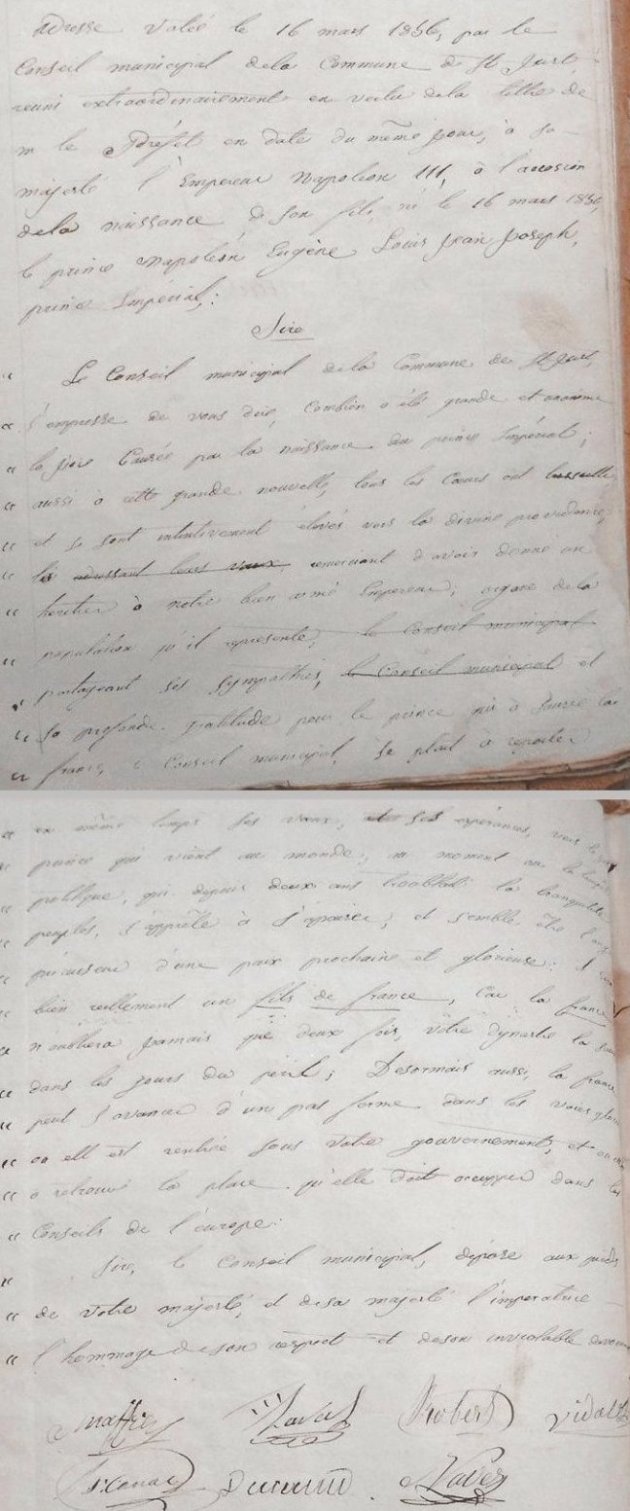 adresse votée le 16 mars 1856, par le
Conseil municipal dela Commune de St Just
reuni extraordinairement en vertu dela lettre de
m le Préfet en date du même jour, à sa
majesté l'Empereur Napoléon III, à l'occasion
dela naissance, de son fils, né le 16 mars 1856,
le prince Napoléon Eugène Louis Jean Joseph,
prince Impérial;
Sire
" Le Conseil municipal dela Commune de St Just,
" s'empresse de vous dire, Combien a été grande et unanime
" la joie Causée par la naissance du prince Impérial;
" aussi à cette grande nouvelle, tous les Cœurs ont
" et se sont intuitivement élevés vers la divine providence,
" les adressant leurs vœux, remerciant d'avoir donné un
" heritier à notre bien aimé Empereur; organe dela
" population qu'il représente, le Conseil municipal
" partageant ses sympathies, le Conseil municipal et
" sa profonde gratitude pour le prince qui a sauvé la
" france, le Conseil municipal, se plait à reporter
" en même temps ses vœux, et ses espérances, vers le
" prince qui vient au monde, au moment où la
" politique, qui depuis deux ans troublait la tranquillité
" peuples, s'apprête à s'apaiser; et semble être
" précurseur d'une paix prochaine et glorieuse.
" bien reellement un fils de france, Car la france
" n'oubliera jamais que deux fois, votre dynastie la
" dans les jours du péril; Désormais aussi, la france
" peut s'avancer d'un pas ferme dans les voies
" où elle est rentrée sous votre gouvernement, et
" a retrouvé la place qu'elle doit occuper dans les
" Conseils de l'europe.
" Sire, le Conseil municipal, dépose aux pieds
" de votre majesté, et desa majesté l'impératrice
" l'hommage deson respect et deson inviolable
Maffre Navas Robert Vidal
Durand Naves